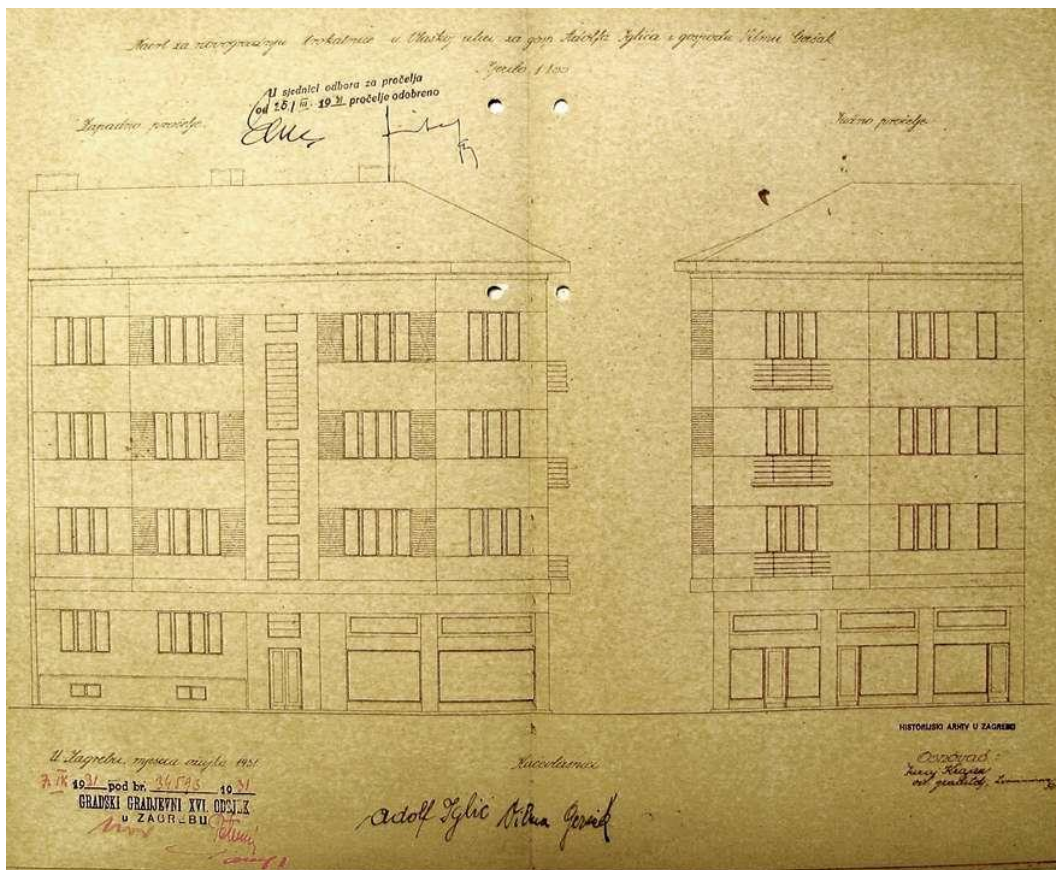 Nacrt za novogradnju trokatnice u Vlaškoj ulici za gosp. Adolfa Iglića i gospodu Vilmu Geršak
Mjerilo 1:100
U sjednici odbora za pročelja
od 25/III. 1931 pročelje odobreno
Zapadno pročelje.
Južno pročelje.
HISTORIJSKI ARHIV U ZAGREBU
U Zagrebu, mjeseca ožujka 1931
7. IX 1931 pod br. 34593 1931
GRADSKI GRADJEVNI XVI. ODSJEK
U ZAGREBU
Adolf Iglić Vilma Geršak
Juraj Krajek
ovl. graditelj,